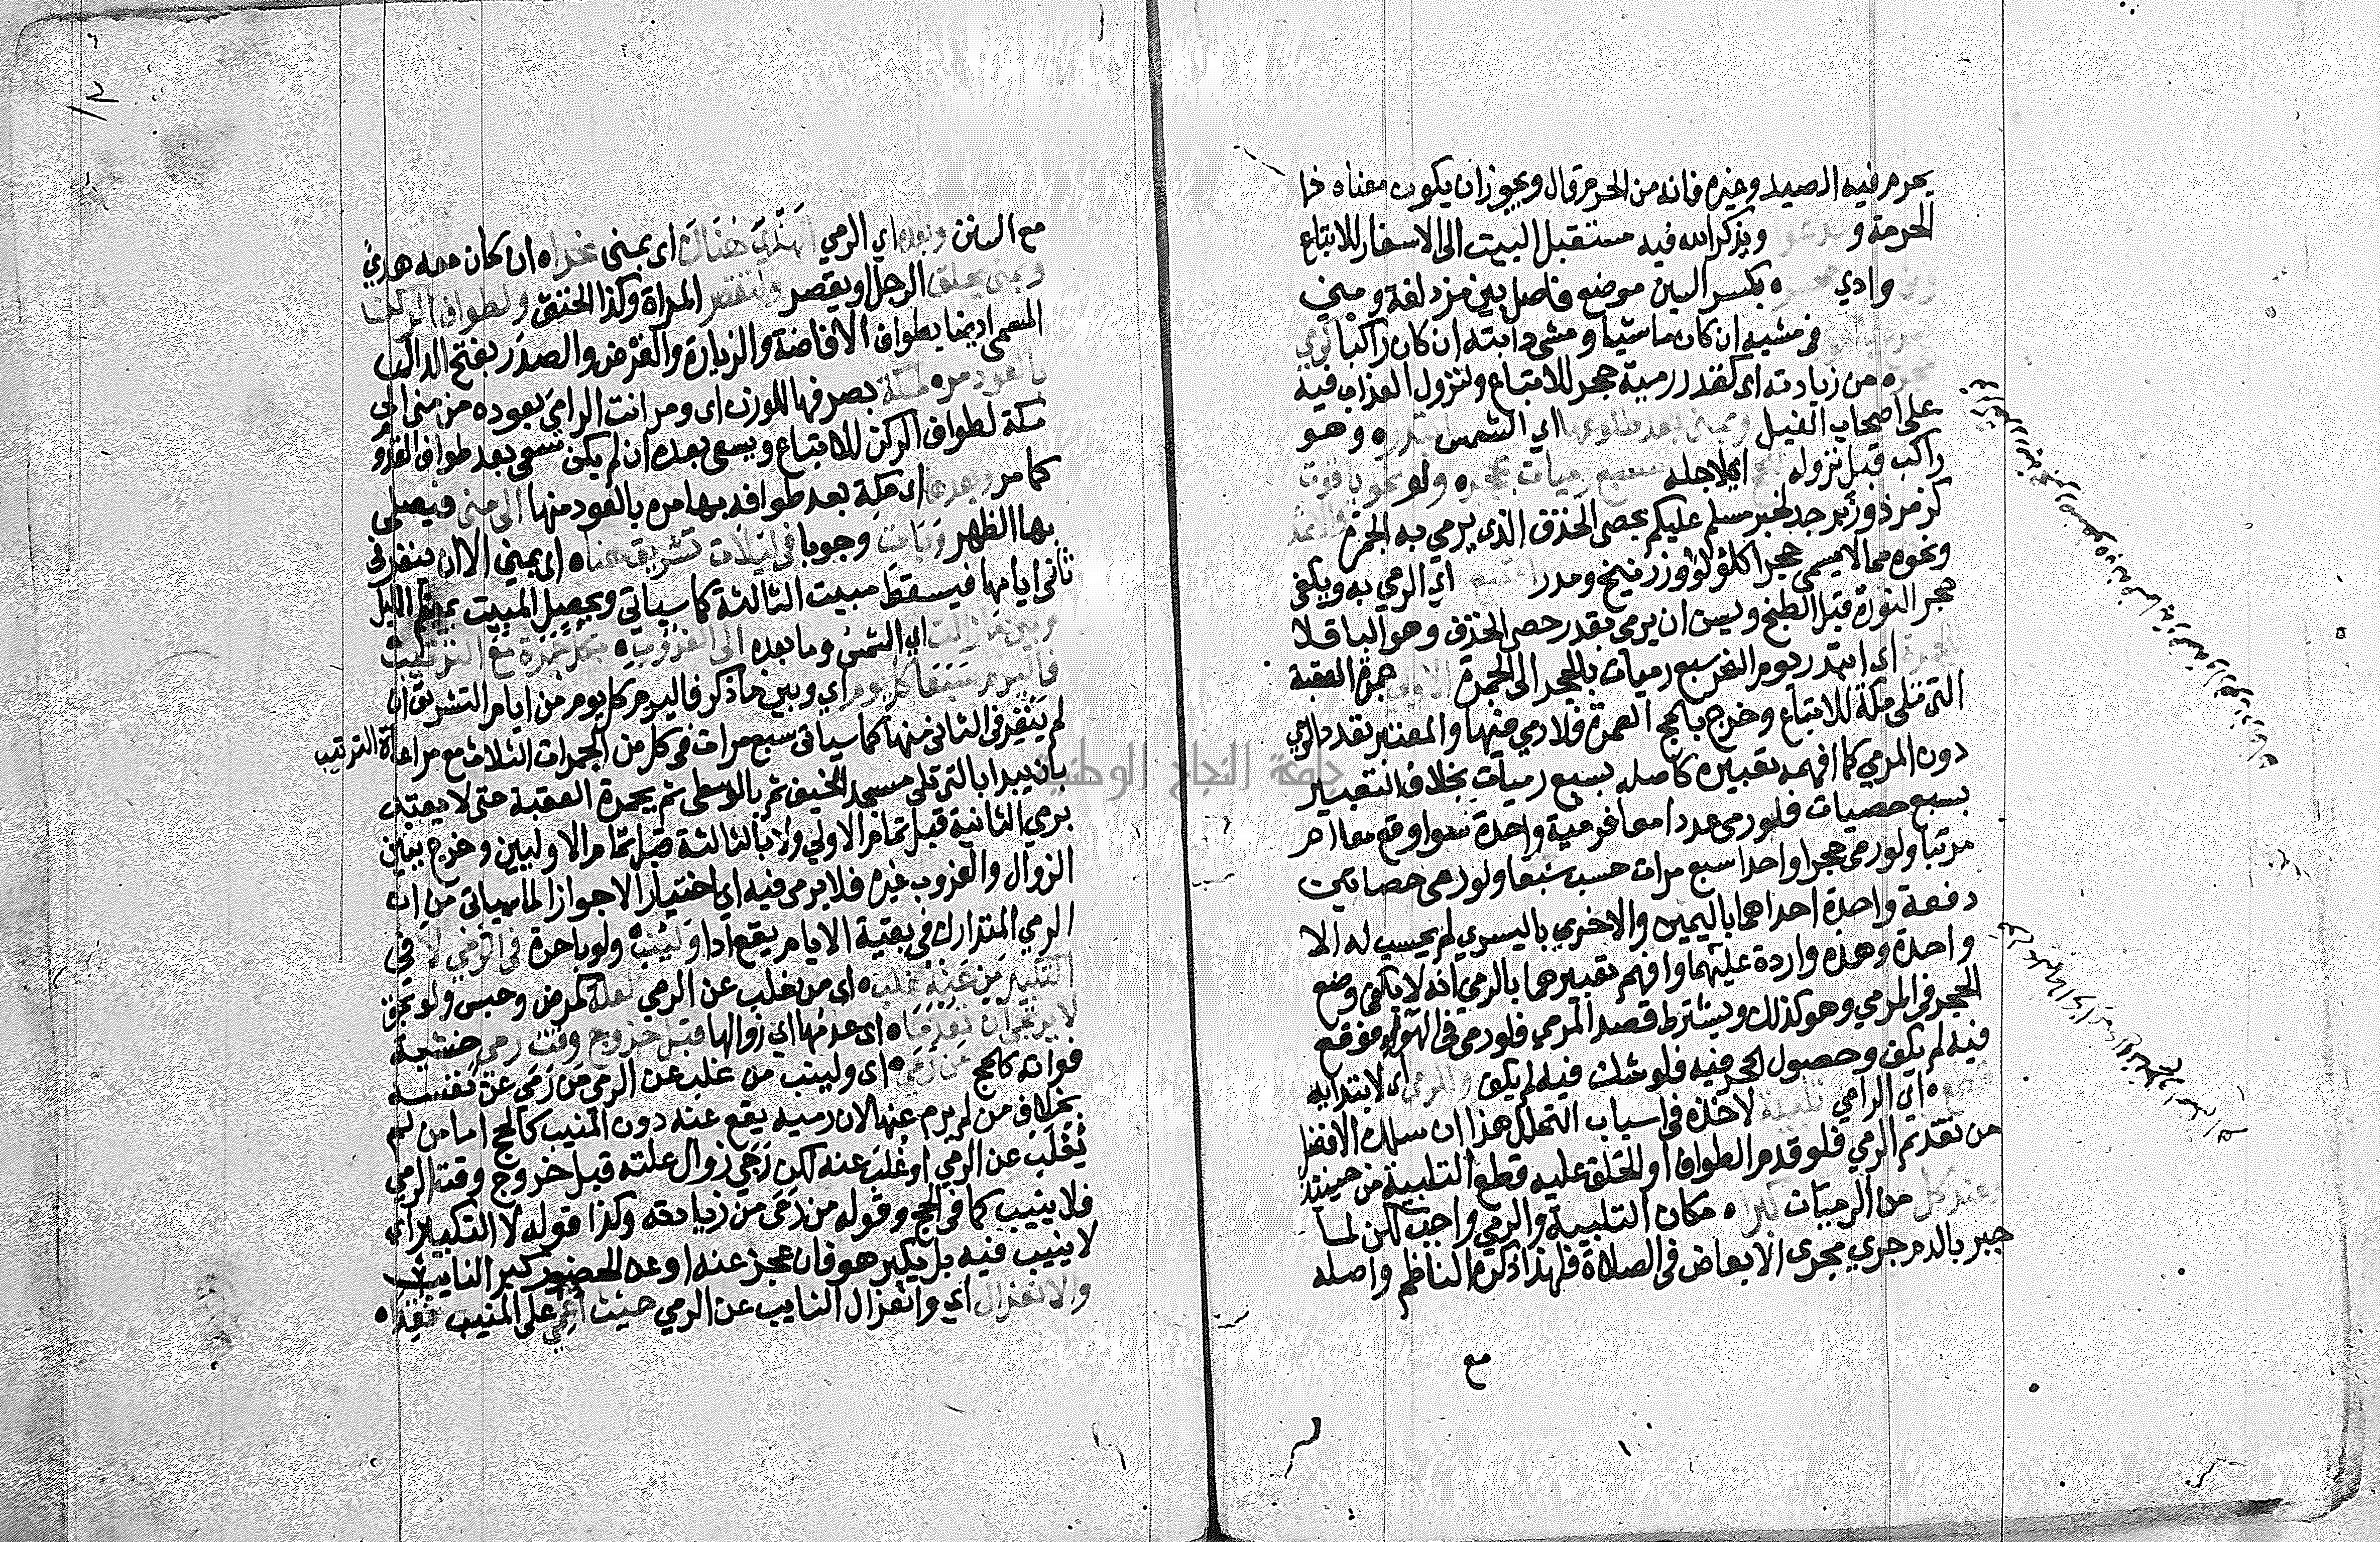 يحرم فيه الصيد وغيره فانه من الحرم قال ويجوز ان يكون معناه ذا
الحرمة و ويذكر الله فيه مستقبل البيت الى الاسفار للاتباع
ومن وادي محسره بكسر السين موضع فاصل بين مزدلفة ومنى
في مشيه ان كان ماشيا ومشى دابته ان كان راكبا كرمي
من زيادته اى كقدر رمية حجر للاتباع ولنزول العذاب فيه
على اصحاب الفيل وبمنى بعد طلوعها اي الشمس ابتدره وهو
راكب قبل نزوله اي لاجله سبع رميات بحجره ولو نحو ياقوت
كزمرذ وزبرجد لخبر مسلم عليكم بحصى الخذف الذي يرمي به الجمرة والاثمد
ونحوه مما لا يسمى حجرا كلؤلؤ وزرنيخ ومدر امتنع اي الرمي به ويكفى
حجر النورة قبل الطبخ ويسن ان يرمي بقدر حصى الخذف وهو الباقلا
اى ابتدر يوم النحر سبع رميات بالحجر الى الجمرة الاولى جمرة العقبة
التي تلى مكة للاتباع وخرج بالحج العمرة فلا رمي فيها والمعتبر تعدد الرمي
دون المرمي كما افهمه تعبيره كاصله بسبع رميات بخلاف التعبير
بسبع حصيات فلو رمى عددا معا فرمية واحدة سوا وقع معا ام
مرتبا ولو رمى حجرا واحدا سبع مرات حسب سبعا ولو رمى حصاتين
دفعة واحدة احداهما باليمين والاخرى باليسرى لم يحسب له الا
واحدة وهذه واردة عليهما وافهم تعبيرهما بالرمي انه لا يكفى وضع
الحجر في المرمي وهو كذلك ويشترط قصد المرمي فلو رمى في الهواء فوقع
فيه لم يكف وحصول الحجر فيه فلو شك فيه لم يكف وللرمي اى لابتدايه
قطع ه اي الرامي تلبية لاخذه في اسباب التحلل هذا ان سلك الافضل
من تقديم الرمي فلو قدم الطواف او الحلق عليه قطع التلبية من حينئذ
وعند كل من الرميات كبراه مكان التلبية والرمي واجب لكن لما
جبر بالدم جرى مجرى الابعاض في الصلاة فلهذا ذكره الناظم واصله
مع
مع السنن وبعده اي الرمي الهدي هناك اى بمنى نحراه ان كان معه هدي
وبمنى يحلق الرجل او يقصر ولتقصر المراة وكذا الخنثى ولطواف الركن
المسمى ايضا بطواف الافاضة والزيارة والفرض والصدر بفتح الدال
بالعود مره لمكة بصرفها للوزن اى ومر انت الرامي بعوده من منى الى
مكة لطواف الركن للاتباع ويسعى بعده ان لم يكن سعى بعد طواف القدوم
كما مر وبعدها اى مكة بعد طوافه بها مره بالعود منها الى منى فيصلى
بها الظهر وبات وجوبا في ليلات تشريق هناه اى بمنى الا ان ينفر في
ثانى ايامها فيسقط مبيت الثالثة كما سياتي ويحصل المبيت بمعظم الليل
وبين ما زالت اي الشمس وما بعده الى الغروب ه بكل جمرة مع الترتيب
فاليرم سبعا كل يوم اي وبين ما ذكر فاليرم كل يوم من ايام التشريق ان
لم ينفر في الثانى منها كما سياتى سبع مرات في كل من الجمرات الثلاث مع مراعاة الترتيب
بان يبدا بالتي تلى مسجد الخيف ثم بالوسطى ثم بجمرة العقبة حتى لا يعتد
برمي الثانية قبل تمام الاولي ولا بالثالثة قبل تمام الاوليين وخرج ببين
الزوال والغروب غيره فلا يرمى فيه اي اختيارا لا جوازا لما سياتى من ان
الرمي المتدارك في بقية الايام يقع ادا ولينب ه ولو باجرة في الرمي لا في
التكبير من عنه غلب ه اي من غلب عن الرمي لعلة كمرض وحبس ولو بحق
لا يرتجى ان تعدماه اى عدمها اي زوالها قبل خروج وقت رمي خشية
فواته كالحج من رمي ه اى ولينب من غلب عن الرمي من رمى عن نفسه
بخلاف من لم يرم عنها لان رميه يقع عنه دون المنيب كالحج اما من لم
يغلب عن الرمي او غلب عنه لكن رجي زوال علته قبل خروج وقت الرمي
فلا ينيب كما في الحج وقوله من رمى من زيادته وكذا قوله لا التكبير اى
لا ينيب فيه بل يكبر هو فان عجز عنه او عن الحضور كبر النايب
والانعزال اي وانعزال النايب عن الرمي حيث اغمي على المنيب فقداه
جامعة النجاح الوطنية